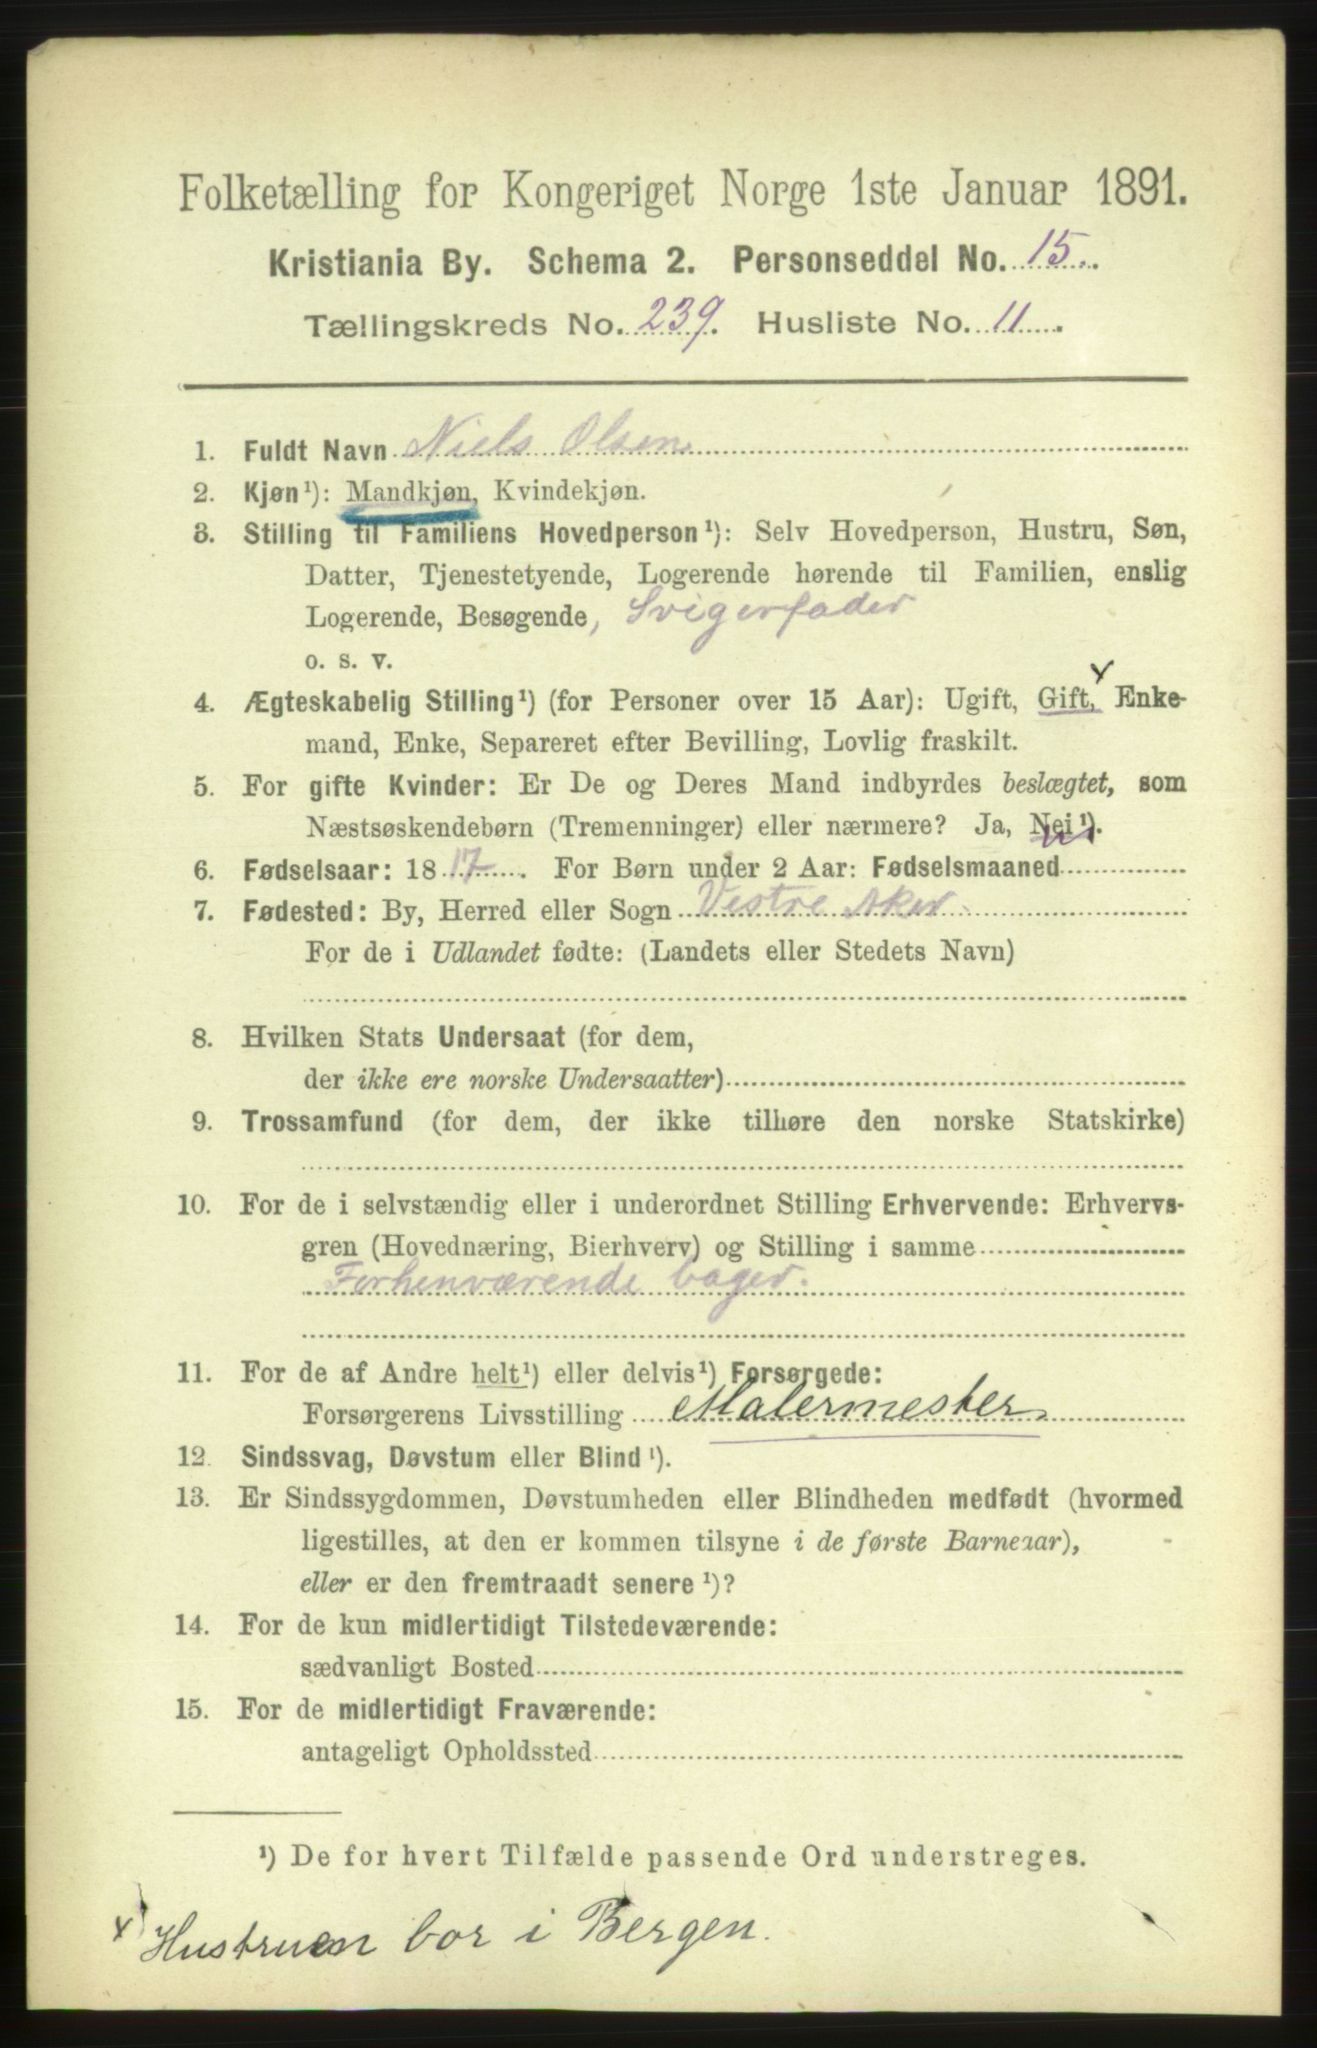 Folketælling for Kongeriget Norge 1ste Januar 1891.
Kristiania By. Schema 2. Personseddel No. 15.
Tællingskreds No. 239. Husliste No. 11
1. Fuldt Navn Niels Olsen
2. Kjøn¹): Mandkjøn, Kvindekjøn.
3. Stilling til Familiens Hovedperson¹): Selv Hovedperson, Hustru, Søn,
Datter, Tjenestetyende, Logerende hørende til Familien, enslig
Logerende, Besøgende, Svigerfader
o. s. v.
x
4. Ægteskabelig Stilling¹) (for Personer over 15 Aar): Ugift, Gift, Enke-
mand, Enke, Separeret efter Bevilling, Lovlig fraskilt.
5. For gifte Kvinder: Er De og Deres Mand indbyrdes beslægtet, som
Næstsøskendebørn (Tremenninger) eller nærmere? Ja, Nei¹).
6. Fødselsaar: 1817. For Børn under 2 Aar: Fødselsmaaned
7. Fødested: By, Herred eller Sogn Vestre Aker
For de i Udlandet fødte: (Landets eller Stedets Navn)
8. Hvilken Stats Undersaat (for dem,
der ikke ere norske Undersaatter)
9. Trossamfund (for dem, der ikke tilhøre den norske Statskirke)
10. For de i selvstændig eller i underordnet Stilling Erhvervende: Erhvervs-
gren (Hovednæring, Bierhverv) og Stilling i samme
Forhenværende bager.
11. For de af Andre helt¹) eller delvis¹) Forsørgede:
Forsørgerens Livsstilling Malermester
12. Sindssvag, Døvstum eller Blind¹).
13. Er Sindssygdommen, Døvstumheden eller Blindheden medfødt (hvormed
ligestilles, at den er kommen tilsyne i de første Barneaar),
eller er den fremtraadt senere¹)?
14. For de kun midlertidigt Tilstedeværende:
sædvanligt Bosted
15. For de midlertidigt Fraværende:
antageligt Opholdssted
¹) De for hvert Tilfælde passende Ord understreges.
x Hustruen bor i Bergen.